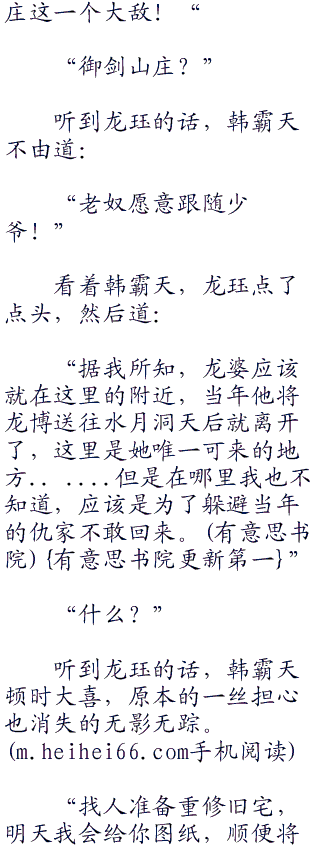 庄这一个大敌！“
“御剑山庄？”
听到龙珏的话，韩霸天
不由道：
“老奴愿意跟随少
爷！”
看着韩霸天，龙珏点了
点头，然后道：
“据我所知，龙婆应该
就在这里的附近，当年他将
龙博送往水月洞天后就离开
了，这里是她唯一可来的地
方.. ....但是在哪里我也不
知道，应该是为了躲避当年
的仇家不敢回来。(有意思书
院) {有意思书院更新第一}”
“什么？”
听到龙珏的话，韩霸天
顿时大喜，原本的一丝担心
也消失的无影无踪。
(m.heihei66.com手机阅读)
“找人准备重修旧宅，
明天我会给你图纸，顺便将